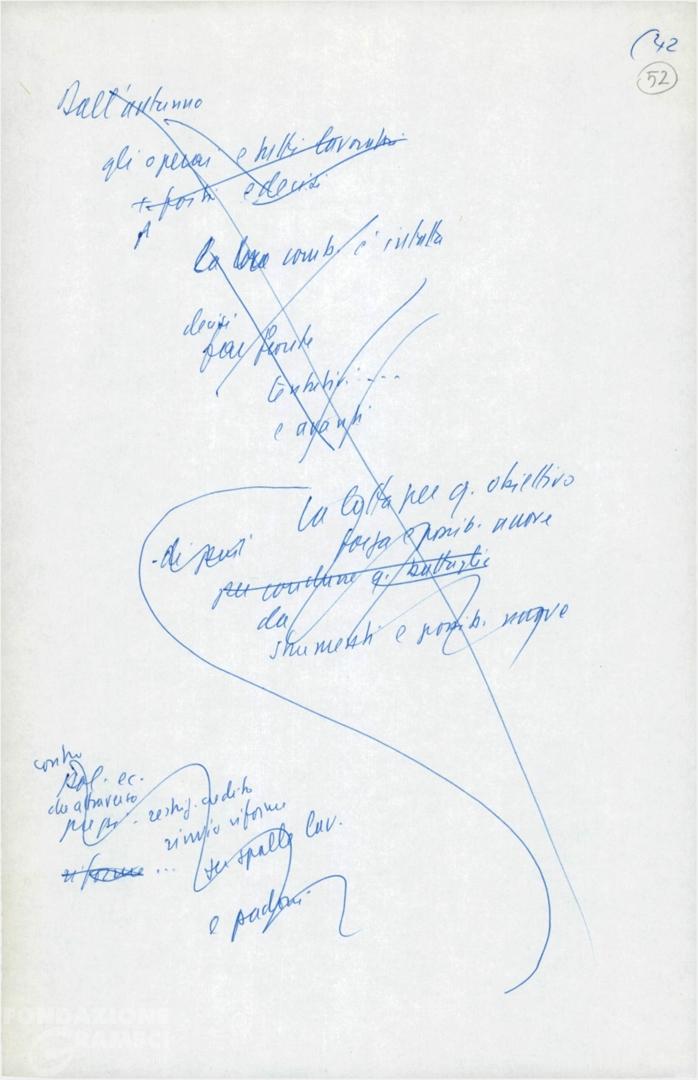 42
52
Dall'autunno
gli operai e tutti lavoratori
+ forti e decisi
la loro comb. è intatta
decisi
far fronte
tentativi....
e avanti
la lotta per q. obiettivo
forza e possib. nuove
per condurre q. battaglie
da
strumenti e possib. nuove
contro
pol. ec.
che attraverso
prezzi - restriz. credito
rinvio riforme
riforme ... su spalle lav.
e padroni
FONDAZIONE
GRAMSCI